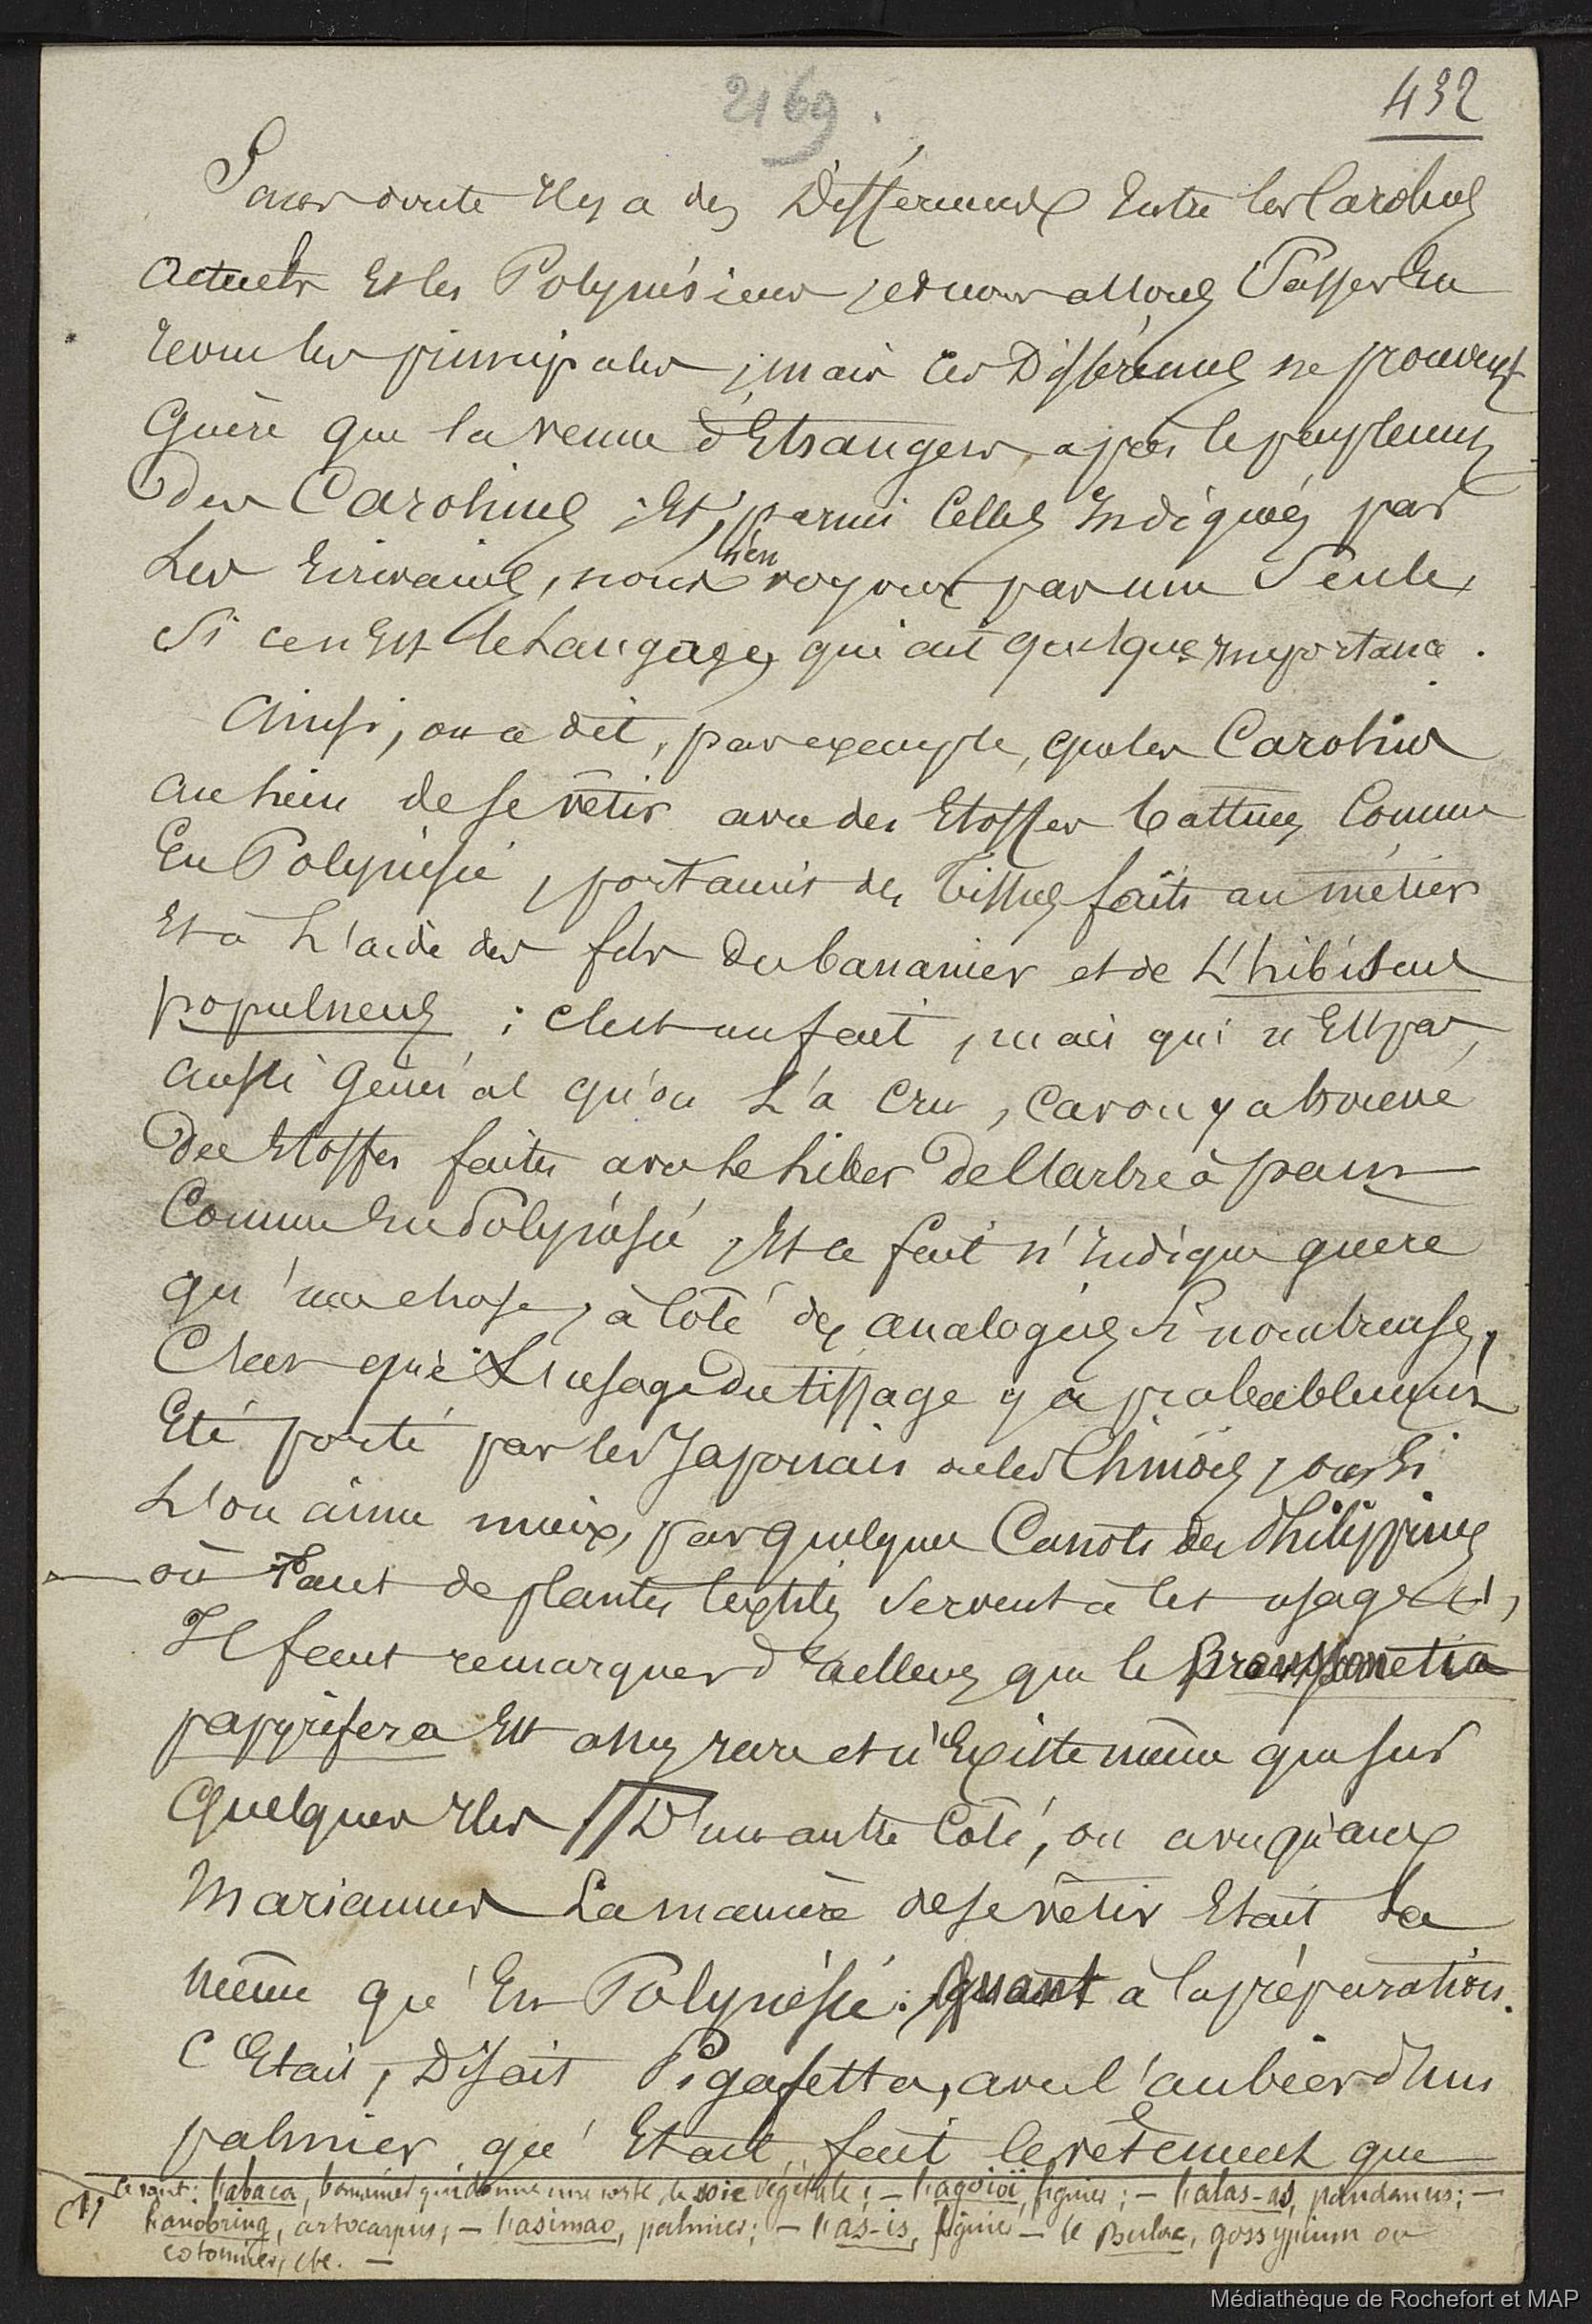 2169.
432
Sans doute il y a des Différences Entre les Carolins
actuels Et les Polynésiens, et nous allons Passer En
revue les principales ; mais ces Différences ne prouvent
Guère que la venue d'Etrangers après le peuplement
Des Carolines ; Et, parmi Celles Indiquées par
Les Ecrivains, nous n'en voyons pas une Seule,
Si ce n'Est le Langage, qui ait quelque Importance.
Ainsi, on a dit, par exemple, que les Carolins
au lieu de se vêtir avec des Etoffes battues, Comme
En Polynésie, portaient des Tissus faits au métier
Et à L'aide des fils du bananier et de L'hibiscus
populneus ; c'est un fait, mais qui n'Est pas
aussi Général qu'on L'a Cru, car on y a trouvé
Des Etoffes faites avec le liber de l'arbre à pain
Comme En Polynésie, Et ce fait n'Indique guère
qu'une chose, à côté des analogies si nombreuses,
C'est que L'usage du tissage y a probablement
Eté porté par les Japonais ou les Chinois, ou si
L'on aime mieux, par quelques Canots des Philippines
où Tant de plantes textiles servent à cet usage (1),
Il faut remarquer d'ailleurs que le Broussonetia
papyrifera Est assez rare et n'Existe même que sur
Quelques Iles // D'un autre Côté, on a vu qu'aux
Mariannes La manière de se vêtir Etait La
même qu'En Polynésie. Quant à la préparation.
C'Etait, Disait Pigafetta, avec l'aubier d'un
palmier qu'Etait fait le vêtement que
(1) Ce sont : l'abaca, bananier qui donne une sorte de soie végétale ; — l'agoioï, figuier ; — l'alas-as, pandanus ; —
l'anobring, artocarpus ; — l'asimao, palmier ; — l'as-is, figuier — le Bulac, gossypium ou
cotonnier, etc. —
Médiathèque de Rochefort et MAP